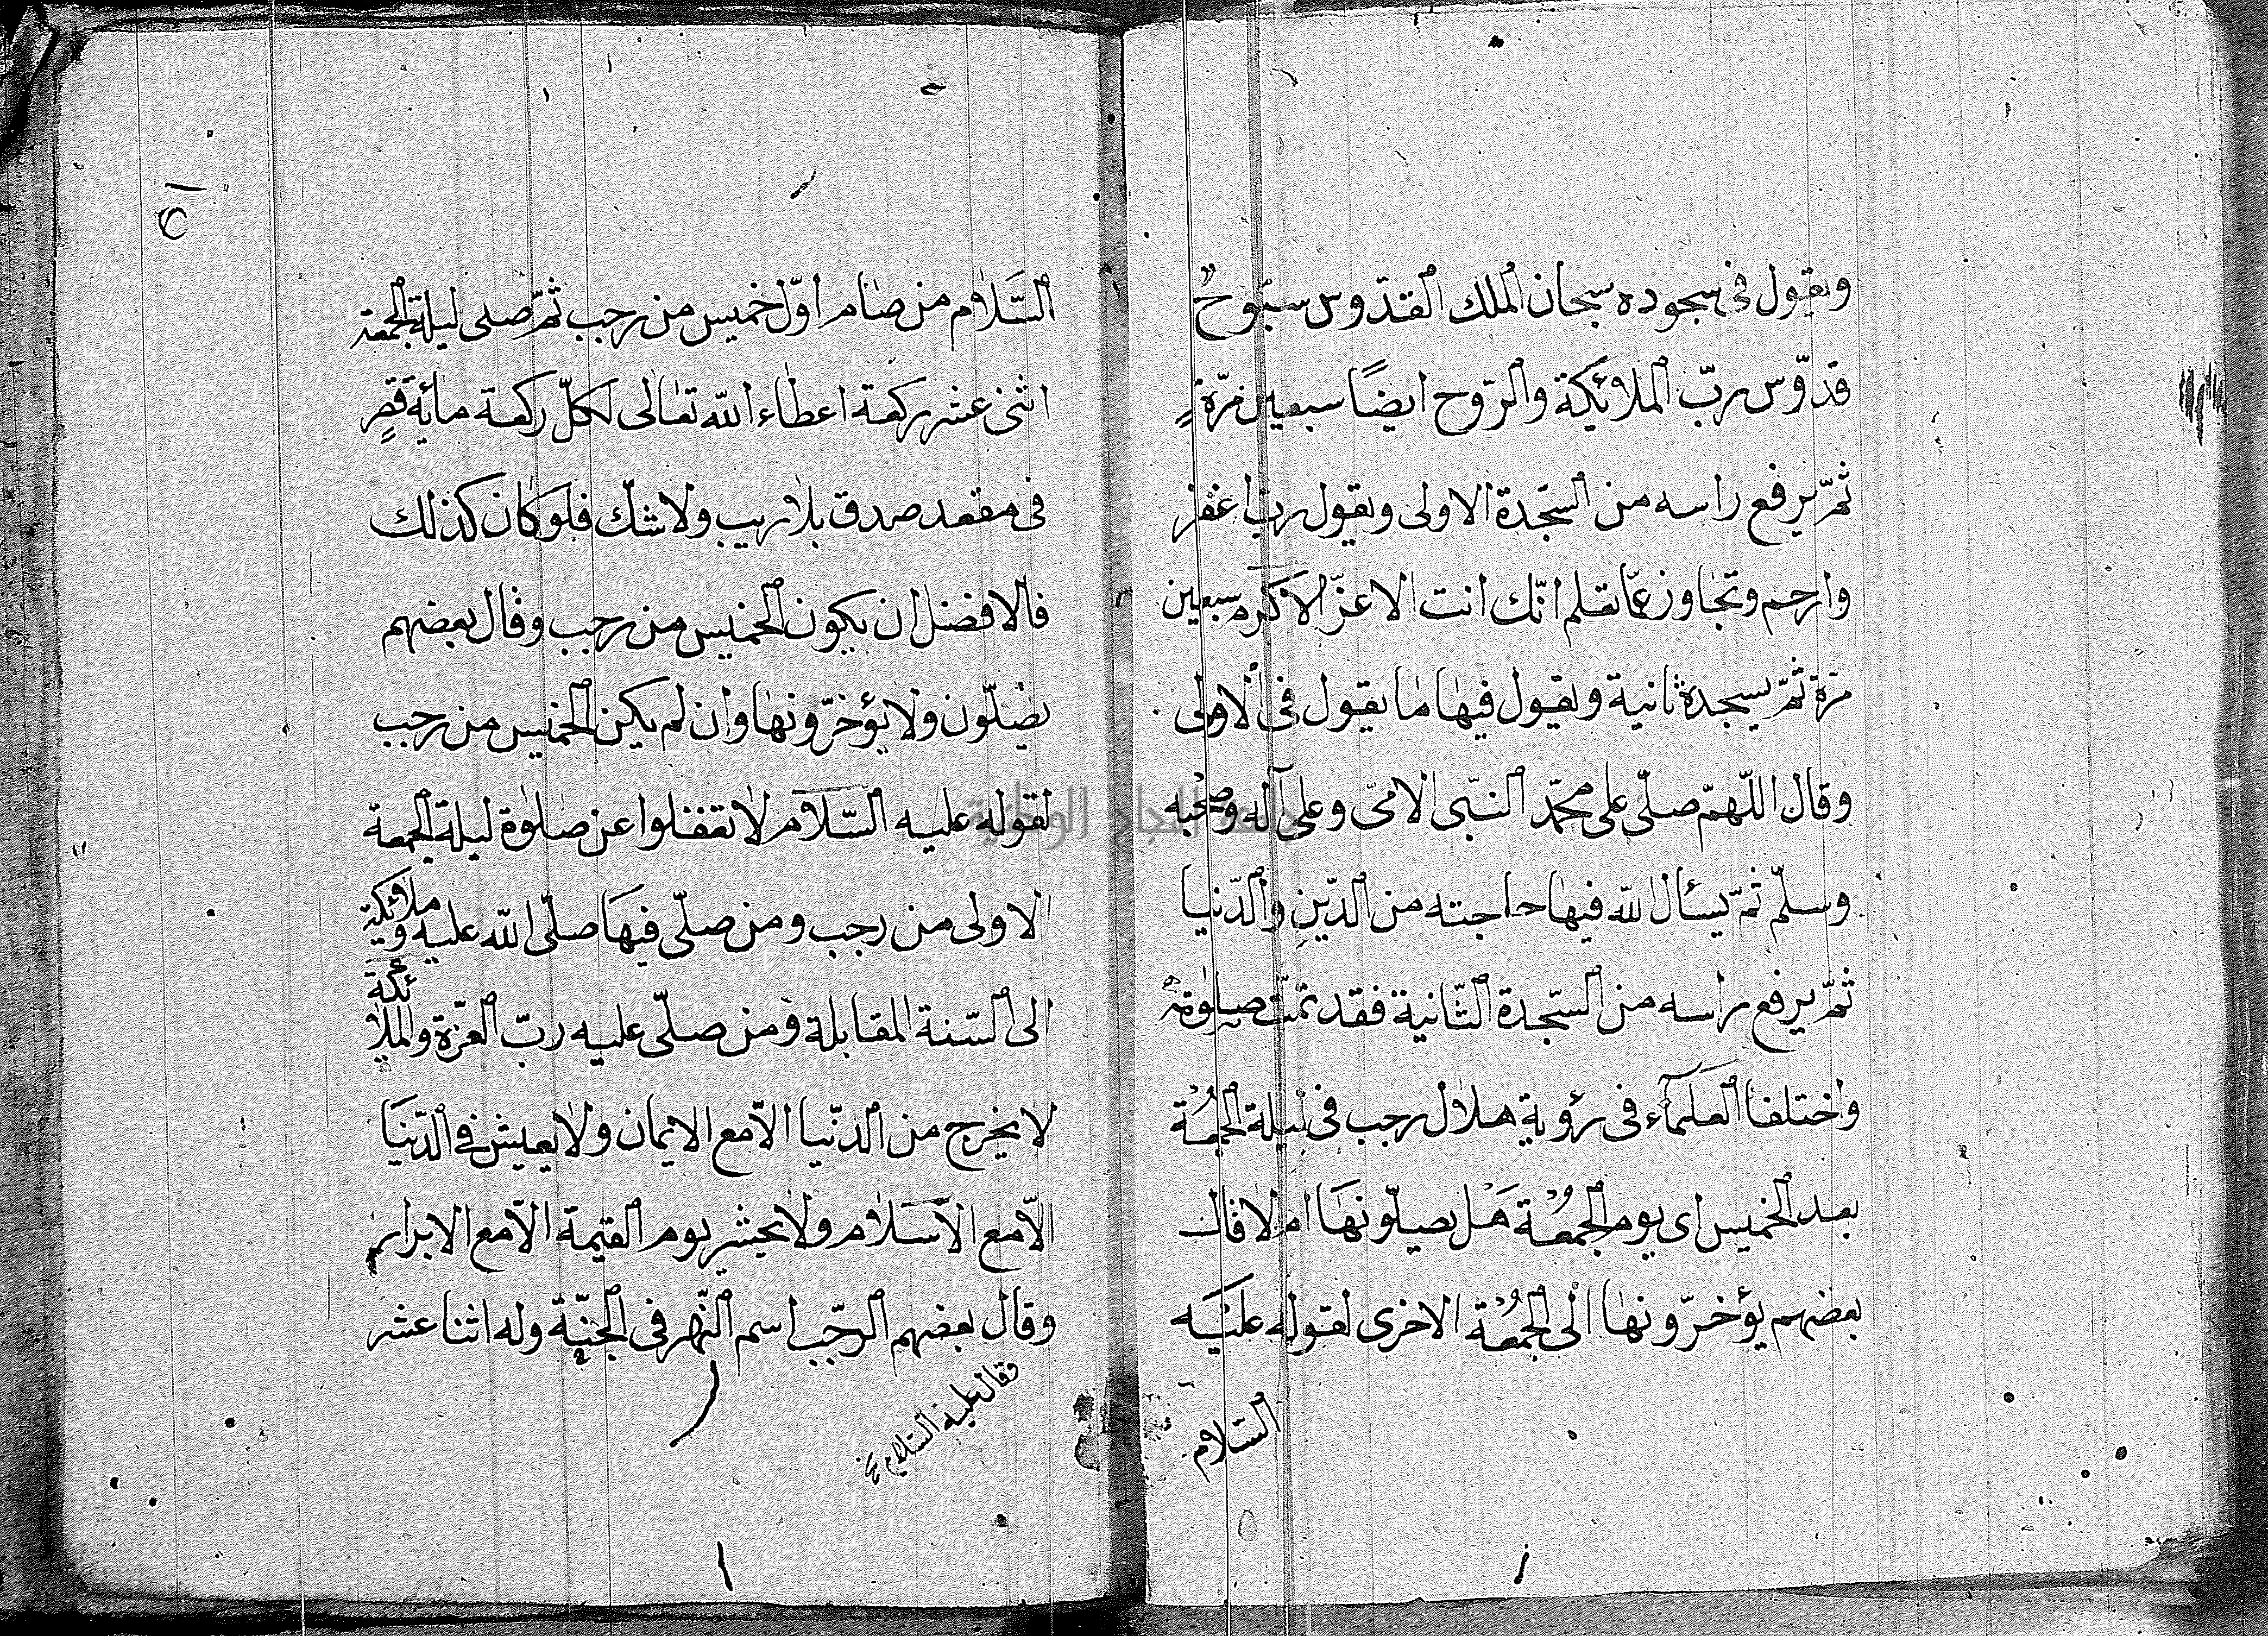 ويقول فى سجوده سبحان الملك القدّوس سبّوحٌ
قدّوس ربّ الملائكة والرّوح ايضًا سبعين مرّةٍ
ثمّ يرفع راسه من السّجدة الاولى ويقول ربّ اغفر
وارحم وتجاوز عمّا تعلم انّك انت الاعزّ الاكرم سبعين
مرّة ثمّ يسجدة ثانية ويقول فيها ما يقول فى الاولى
وقال اللّهمّ صلّى على محمّد النّبى الامىّ وعلى آله وصحبه
وسلّم ثمّ يسأل اللّه فيها حاجته من الدّين والدّنيا
ثمّ يرفع راسه من السّجدة الثّانية فقد تمّت صلوته
واختلفا العلمآء فى رؤية هلال رجب فى ليلة الجمُعْة
بعد الخميس اى يوم الجمُعْة هَل يصلّونهَا ام لا قال
بعضهم يؤخّرونها الى الجمُعْة الاخرى لقوله عليَه
السّلام
السَّلام من صام اوّل خميس من رجب ثمّ صلى ليلة الجمعة
اثنى عشر ركعة اعطاء اللّه تعالى لكلّ ركعة مأية قصرٍ
فى مقعد صدق بلا ريب ولا شكّ فلو كان كذلك
فالافضل ان يكون الخميس من رجب وقال بعضهم
يصّلّون ولا يؤخّرونها وان لم يكن الخميس من رجب
لقوله عليه السّلام لا تغفلوا عن صلوة ليلة الجمعة
الاولى من رجب ومن صلّى فيهَا صلّى اللّه عليه وملائكة
الى السّنة المقابلة ومن صلّى عليه ربّ العزّة والملائكة
لا يخرج من الدّنيا الاّ مع الايمان ولا يعيش فى الدّنيَا
الاّ مع الاسَلام ولا يحشر يوم القيمة الاّ مع الابرار
وقال بعضهم الرجّب اسم النّهر فى الجنّة وله اثنا عشر
وقال عليه السّلام
جامعة النجاح الوطنية